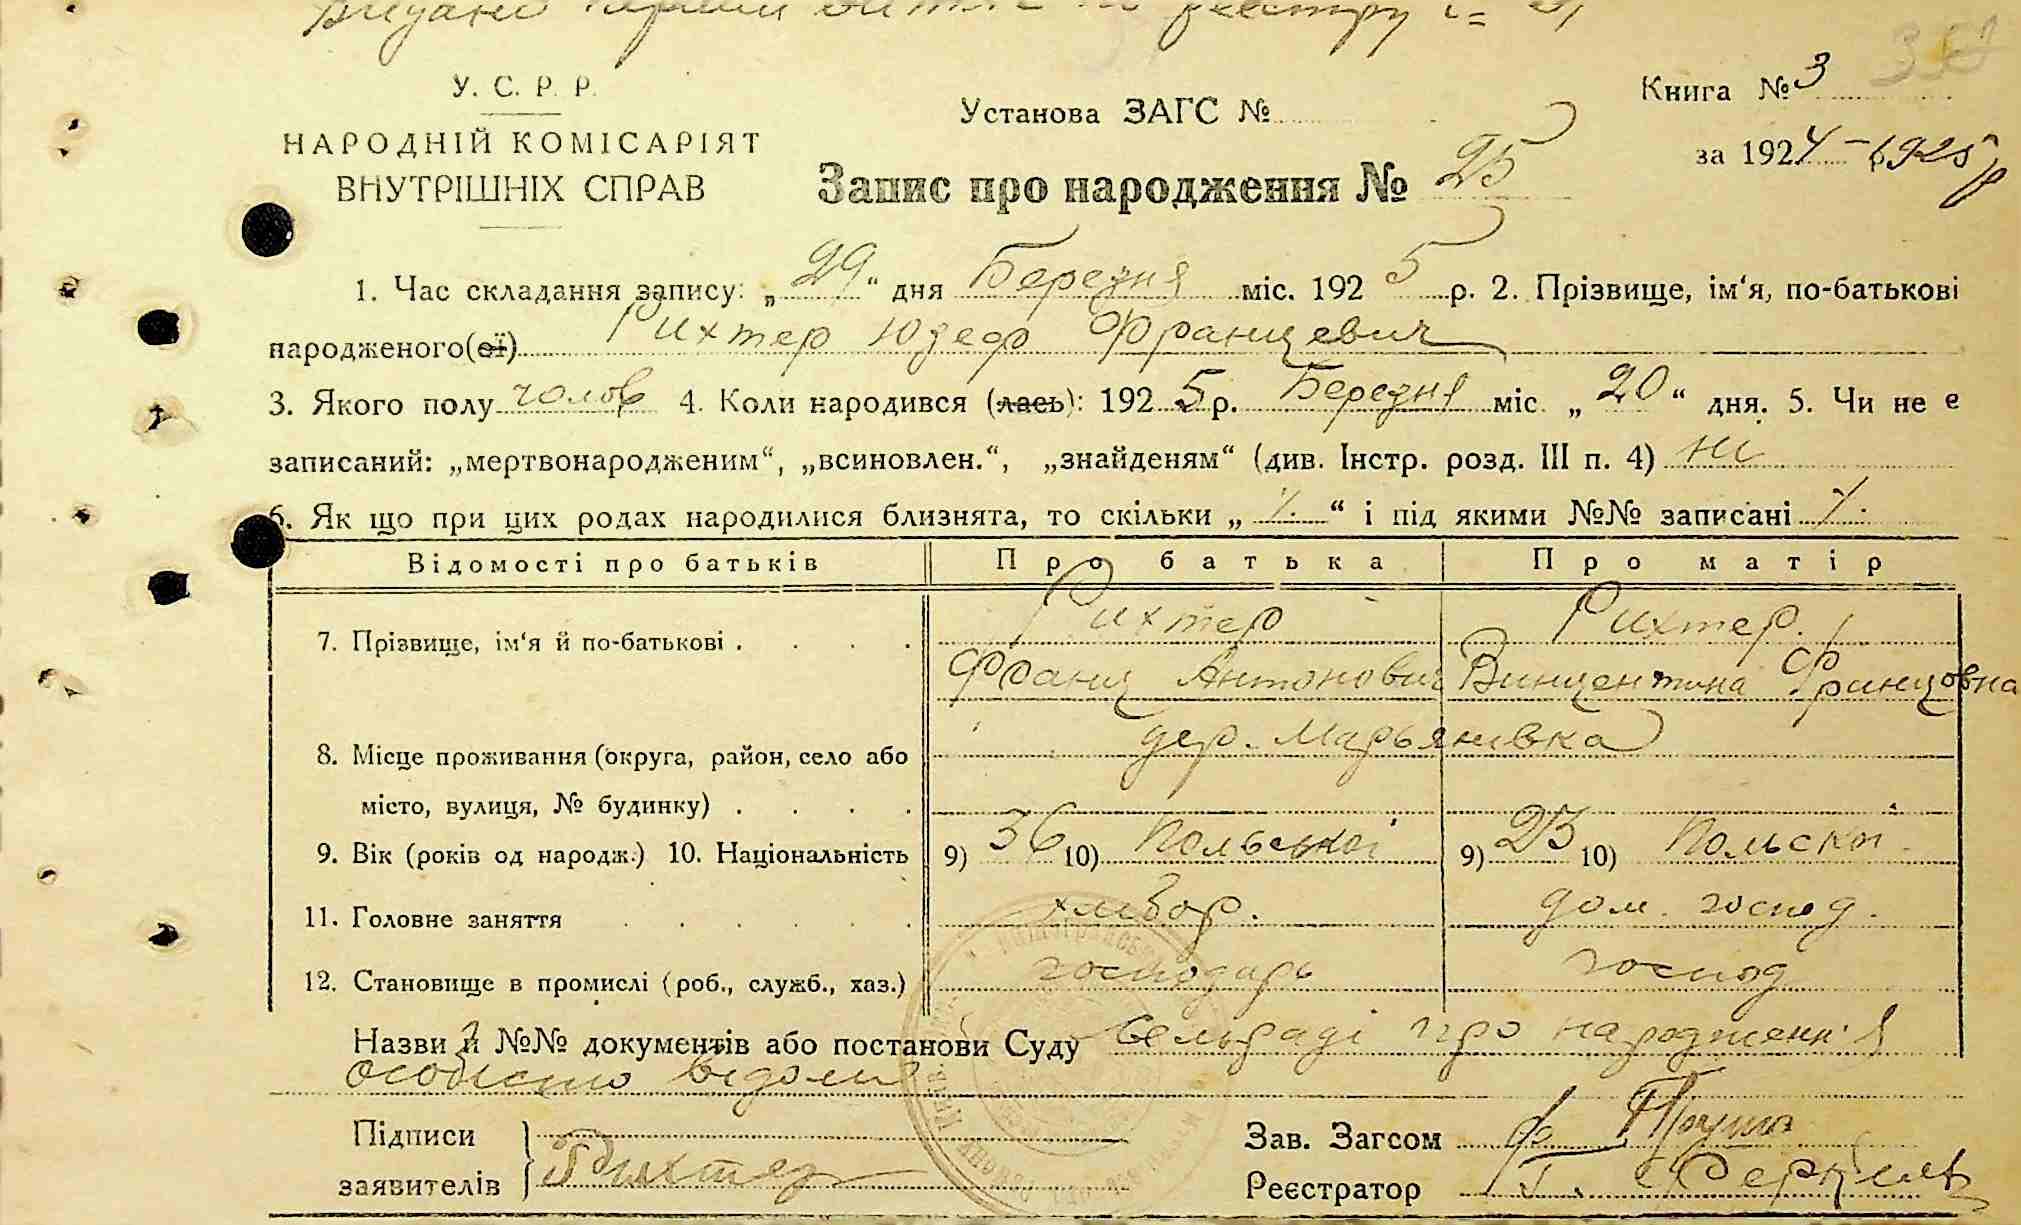 У. С. Р. Р.
НАРОДНІЙ КОМІСАРІЯТ
ВНУТРІШНІХ СПРАВ
Установа ЗАГС №
Запис про народження № 25
Книга № 3
за 1924 – 1925 р
1. Час складання запису: „29“ дня Березня міс. 1925 р. 2. Прізвище, ім‘я, по-батькові
народженого(ої) Рихтер Юзеф Францевич
3. Якого полу чолов 4. Коли народився (лась): 1925 р. Березня міс. „20“ дня. 5. Чи не є
записаний: „мертвонародженим“, „всиновлен.“, „знайденям“ (див. Інстр. розд. III п. 4) ні
6. Як що при цих родах народилися близнята, то скільки „ “ і під якими №№ записані
Відомості про батьків Про батька Про матір
7. Прізвище, ім‘я й по-батькові . . . . Рихтер Рихтер.
Франц Антонович Винцентина Францовна
8. Місце проживання (округа, район, село або дер. Марьянивка
місто, вулиця, № будинку) . . . .
9. Вік (років од народж.) 10. Національність 9) 36 10) Польської 9) 23 10) Польскі
11. Головне заняття хлібор. дом. господ.
12. Становище в промислі (роб., служб., хаз.) господарь господ
Назви й №№ документів або постанови Суду сельраді про народження
особисто відомі
Підписи
заявителів Рихтер
Зав. Загсом
Реєстратор